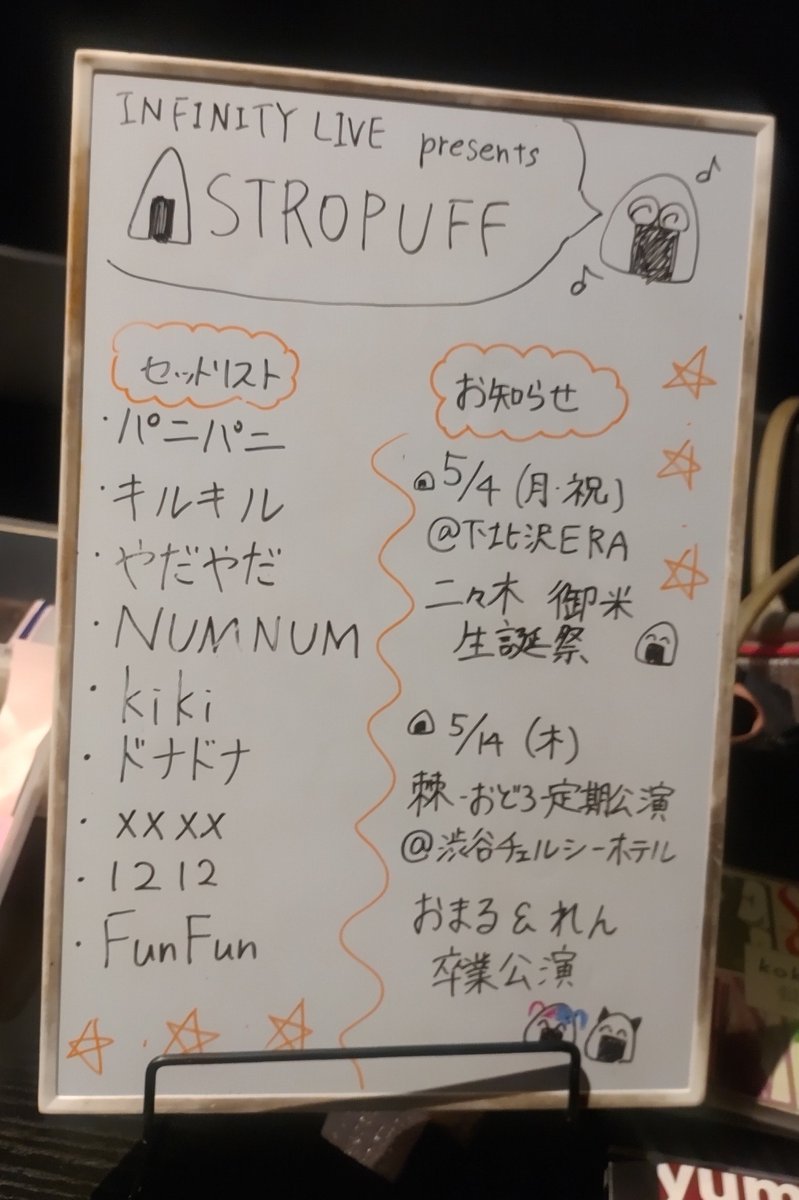 INFINITY LIVE presents
ASTROPUFF
セットリスト
・パニパニ
・キルキル
・やだやだ
・NUMNUM
・kiki
・ドナドナ
・xxxx
・1212
・FunFun
お知らせ
5/4 (月・祝)
@下北沢ERA
二々木 御米
生誕祭
5/14 (木)
棘-おどろ-定期公演
@渋谷チェルシーホテル
おまる & れん
卒業公演
yum